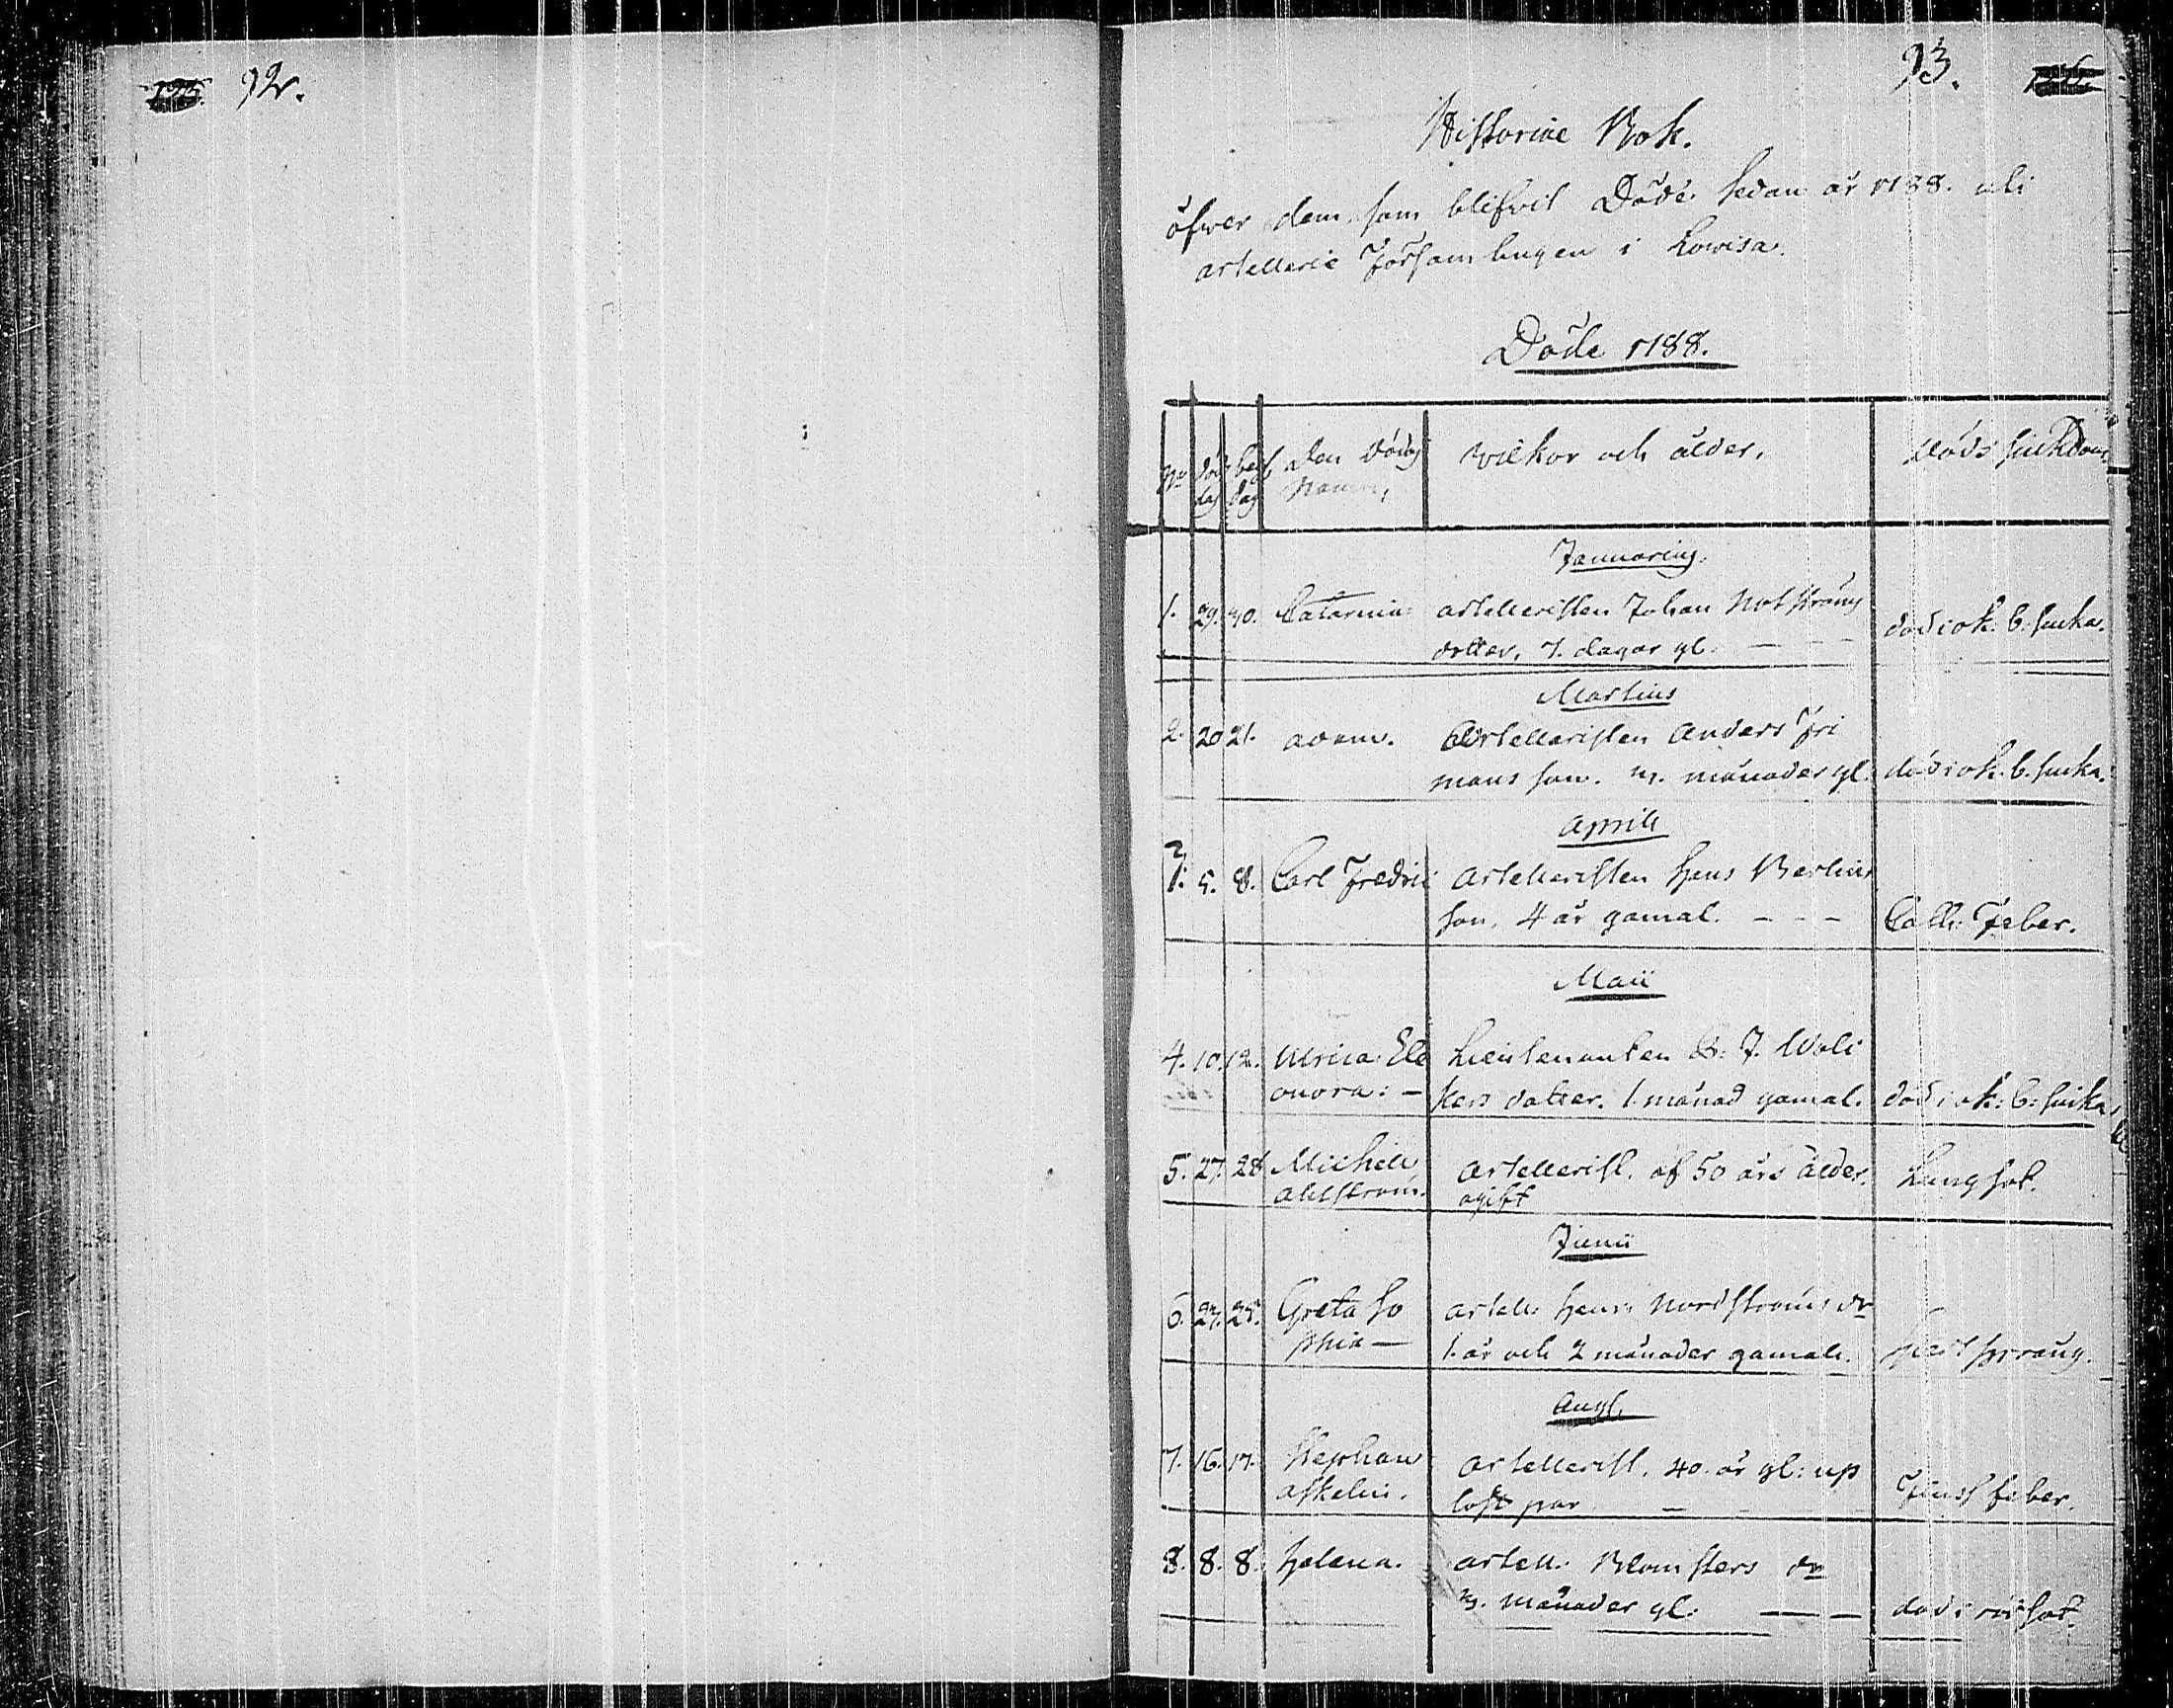 92.
93.
Historiae Bok.
öfwer dem som blifwit Döde sedan år 1788. uti
artellerie Församlingen i Lowisa.
Döde 1788.
No död dag begr dag Den Dödas Namn, wilkor och ålder. Döds siukdom
Januarius.
1. 29. 30. Catarina artelleristen Johan
dotter, 7. dagar gl. — död i ok: b: siuka.
Martius
2. 20 21. adam. Artelleristen Anders Fri
mans son. 3. månader gl. död i ok. b. siuka.
Aprill
3. 5. 8. Carl Fredric Artelleristen Hans Berlins
son, 4 år gamal. - - - Coll: Feber.
Maii
4. 10. 12. Ulrica Ele Lieutenanten B: J. Wolc
onora: — kers dotter. 1. månad gamal. död i ok: b: siuka
5. 27. 28 Michell Artellerist. af 50 års ålder. Lungsot.
ahlström. ogift
Junii
6. 23. 25. Greta So artell: Hans Nordströms dr
phia — 1. år och 2 månader gamal.
Aug.
7. 16. 17. Stephan Artellerist. 40. år gl: up
Askelin.
8. 8. 8. Helena. artell. Blomsters dr
3. månader gl: — — död i rödsot.